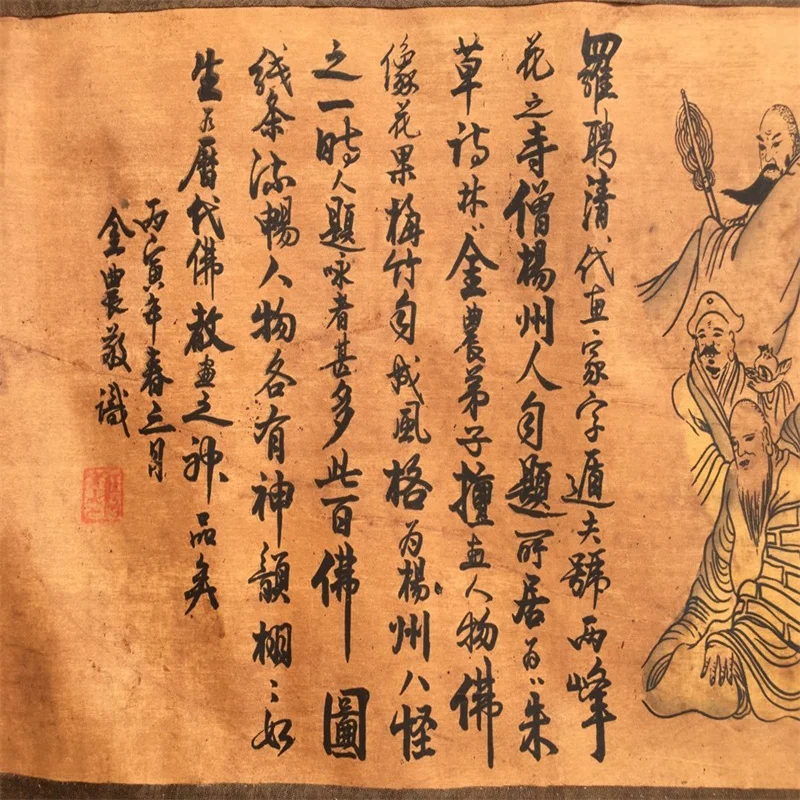 羅聘清代画家字遁夫號两峰
花之寺僧楊州人自題所居为朱
草詩林金農弟子擅画人物佛
像花果梅竹自成風格为楊州八怪
之一時人題咏者甚多此百佛圖
线条流暢人物各有神韻栩々如
生为曆代佛教画之神品矣
丙寅年春三月
金農敬識